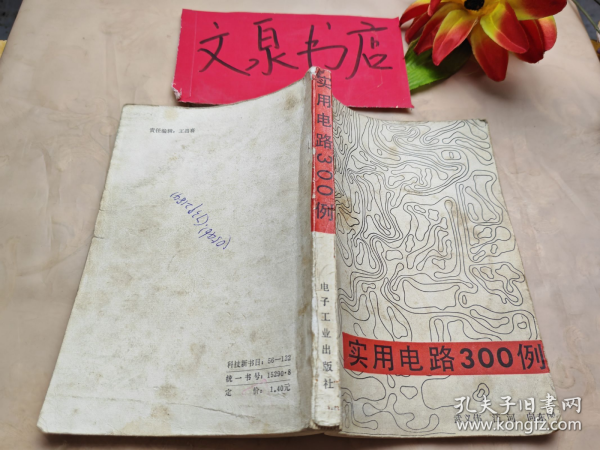 文泉书店
实用电路300例
电子工业出版社
实用电路300例
科技新书目：56—132
统一书号：15290·8
定 价：1.40元
孔夫子旧书网
kongfz.com